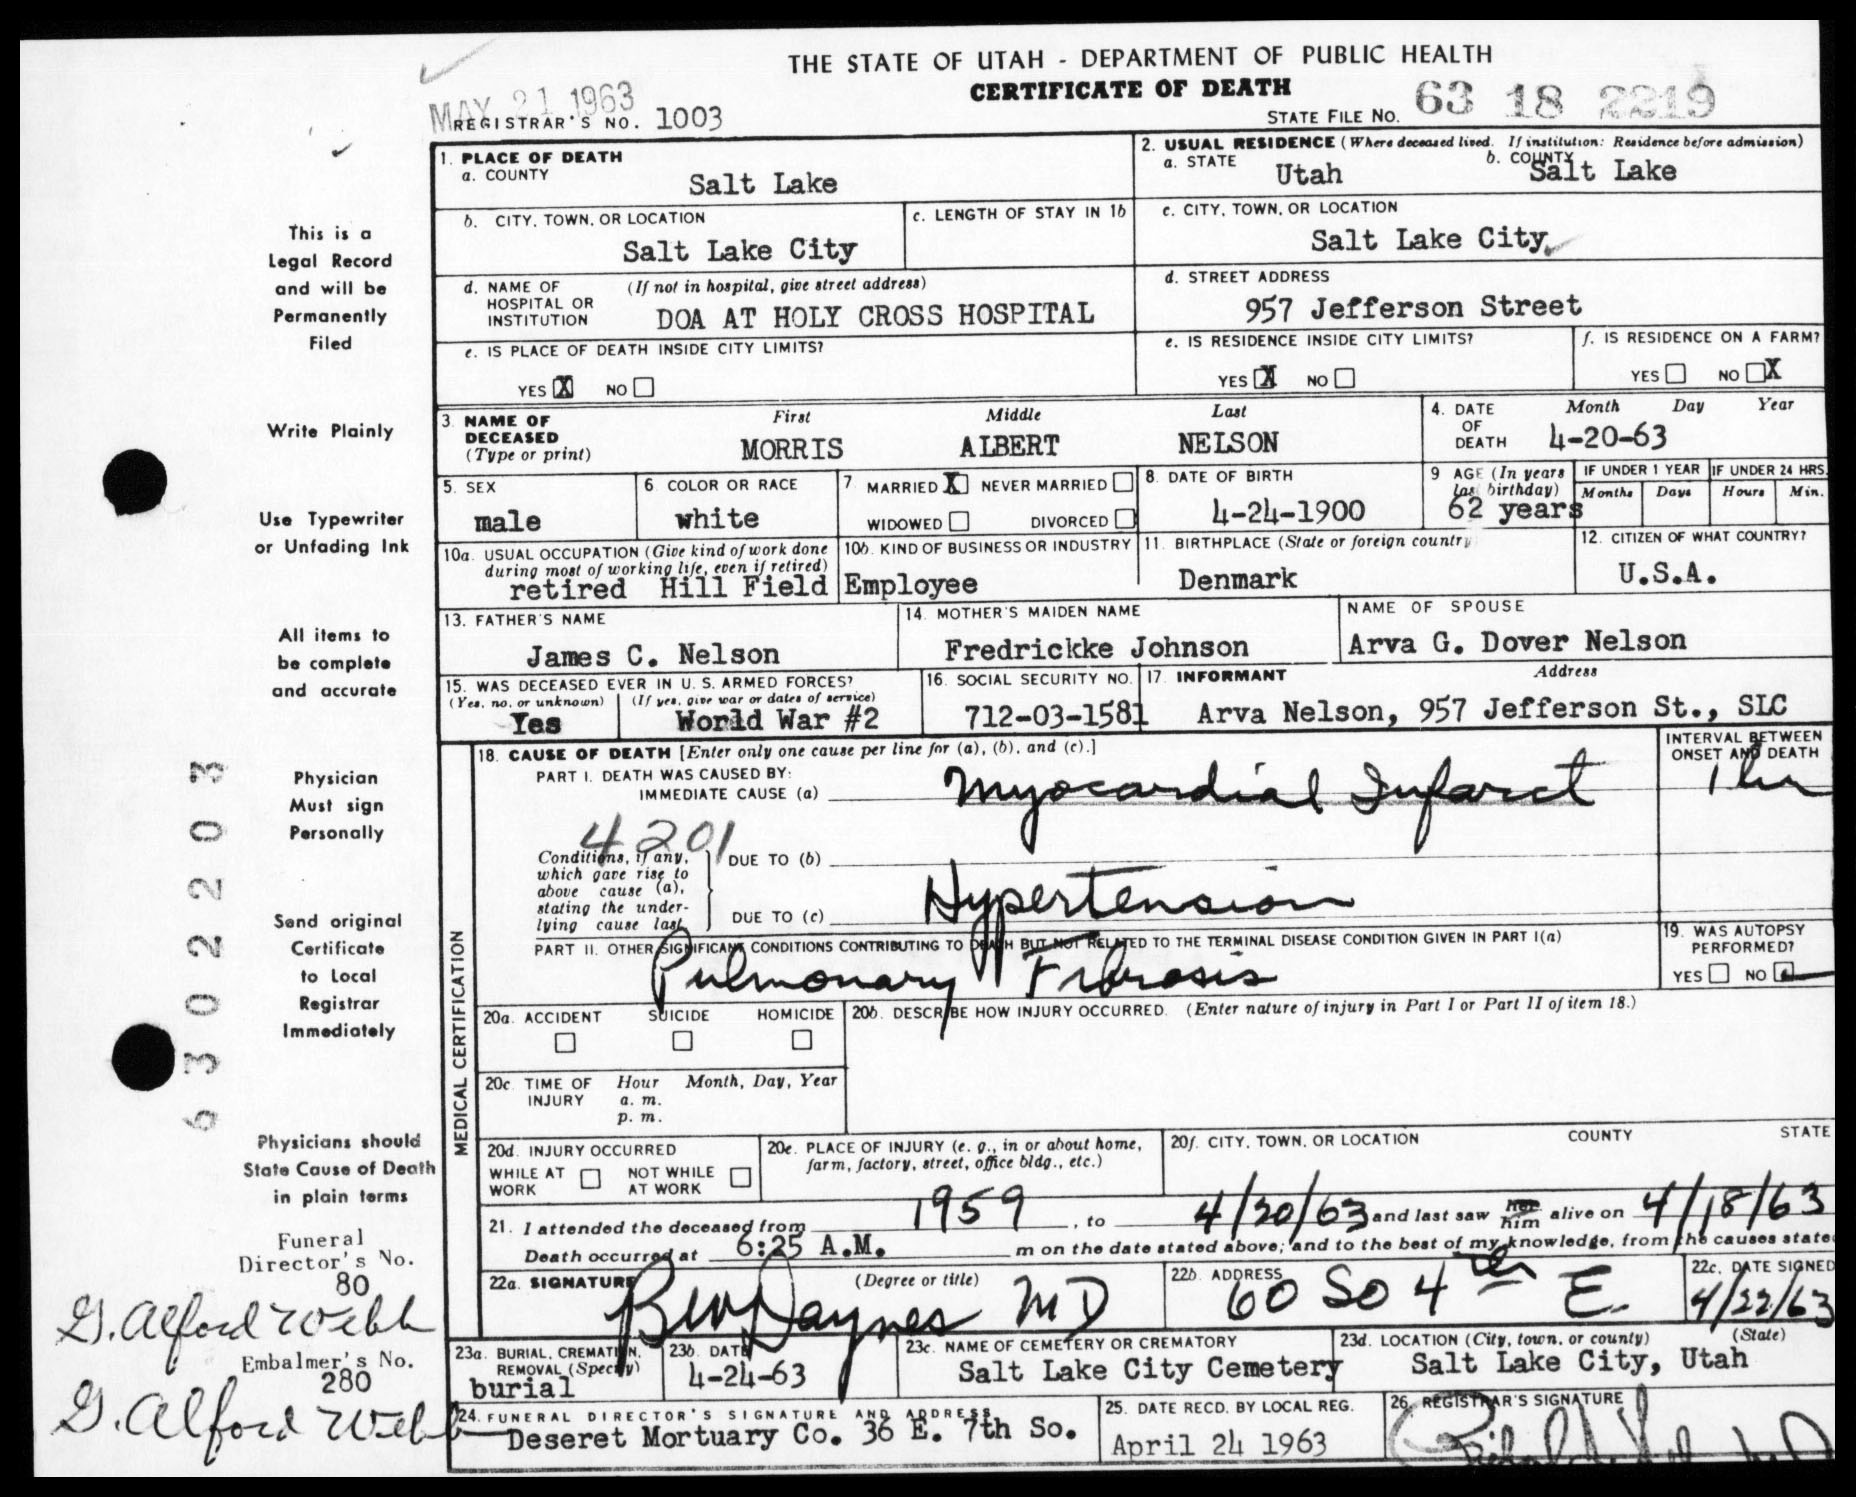 THE STATE OF UTAH - DEPARTMENT OF PUBLIC HEALTH
CERTIFICATE OF DEATH
MAY 21 1963
REGISTRAR'S NO. 1003
STATE FILE NO. 63 18 2219
1. PLACE OF DEATH
a. COUNTY
Salt Lake
2. USUAL RESIDENCE (Where deceased lived. If institution: Residence before admission)
a. STATE Utah b. COUNTY Salt Lake
b. CITY, TOWN, OR LOCATION
Salt Lake City
c. LENGTH OF STAY IN 1b
c. CITY, TOWN, OR LOCATION
Salt Lake City
d. NAME OF HOSPITAL OR INSTITUTION (If not in hospital, give street address)
DOA AT HOLY CROSS HOSPITAL
d. STREET ADDRESS
957 Jefferson Street
e. IS PLACE OF DEATH INSIDE CITY LIMITS?
YES X NO
e. IS RESIDENCE INSIDE CITY LIMITS?
YES X NO
f. IS RESIDENCE ON A FARM?
YES NO X
3. NAME OF DECEASED (Type or print)
First Middle Last
MORRIS ALBERT NELSON
4. DATE OF DEATH Month Day Year
4-20-63
5. SEX
male
6. COLOR OR RACE
white
7. MARRIED X NEVER MARRIED
WIDOWED DIVORCED
8. DATE OF BIRTH
4-24-1900
9 AGE (In years last birthday)
62 years
IF UNDER 1 YEAR
Months Days
IF UNDER 24 HRS.
Hours Min.
10a. USUAL OCCUPATION (Give kind of work done during most of working life, even if retired)
retired Hill Field
10b. KIND OF BUSINESS OR INDUSTRY
Employee
11. BIRTHPLACE (State or foreign country
Denmark
12. CITIZEN OF WHAT COUNTRY?
U.S.A.
13. FATHER'S NAME
James C. Nelson
14. MOTHER'S MAIDEN NAME
Fredrickke Johnson
NAME OF SPOUSE
Arva G. Dover Nelson
15. WAS DECEASED EVER IN U. S. ARMED FORCES?
(Yes, no, or unknown) (If yes, give war or dates of service)
Yes World War #2
16. SOCIAL SECURITY NO.
712-03-1581
17. INFORMANT Address
Arva Nelson, 957 Jefferson St., SLC
MEDICAL CERTIFICATION
18. CAUSE OF DEATH [Enter only one cause per line for (a), (b), and (c).]
INTERVAL BETWEEN ONSET AND DEATH
PART I. DEATH WAS CAUSED BY:
IMMEDIATE CAUSE (a) Myocardial Infarct 1 hr
4201
Conditions, if any, which gave rise to above cause (a), stating the underlying cause last.
DUE TO (b)
DUE TO (c) Hypertension
PART II. OTHER SIGNIFICANT CONDITIONS CONTRIBUTING TO DEATH BUT NOT RELATED TO THE TERMINAL DISEASE CONDITION GIVEN IN PART I(a)
Pulmonary Fibrosis
19. WAS AUTOPSY PERFORMED?
YES NO
20a. ACCIDENT SUICIDE HOMICIDE
20b. DESCRIBE HOW INJURY OCCURRED. (Enter nature of injury in Part I or Part II of item 18.)
20c. TIME OF INJURY Hour Month, Day, Year
a. m.
p. m.
20d. INJURY OCCURRED
WHILE AT WORK NOT WHILE AT WORK
20e. PLACE OF INJURY (e. g., in or about home, farm, factory, street, office bldg., etc.)
20f. CITY, TOWN, OR LOCATION COUNTY STATE
21. I attended the deceased from 1959, to 4/20/63 and last saw her him alive on 4/18/63
Death occurred at 6:25 A.M. m on the date stated above; and to the best of my knowledge, from the causes state
22a. SIGNATURE (Degree or title)
Daynes MD
22b. ADDRESS
60 So 4th E.
22c. DATE SIGNED
4/22/63
23a. BURIAL, CREMATION, REMOVAL (Specify)
burial
23b. DATE
4-24-63
23c. NAME OF CEMETERY OR CREMATORY
Salt Lake City Cemetery
23d. LOCATION (City, town, or county) (State)
Salt Lake City, Utah
24. FUNERAL DIRECTOR'S SIGNATURE AND ADDRESS
Deseret Mortuary Co. 36 E. 7th So.
25. DATE RECD. BY LOCAL REG.
April 24 1963
26. REGISTRAR'S SIGNATURE
This is a
Legal Record
and will be
Permanently
Filed
Write Plainly
Use Typewriter
or Unfading Ink
All items to
be complete
and accurate
Physician
Must sign
Personally
Send original
Certificate
to Local
Registrar
Immediately
Physicians should
State Cause of Death
in plain terms
6302203
Funeral
Director's No.
80
G. Alford Webb
Embalmer's No.
280
G. Alford Webb